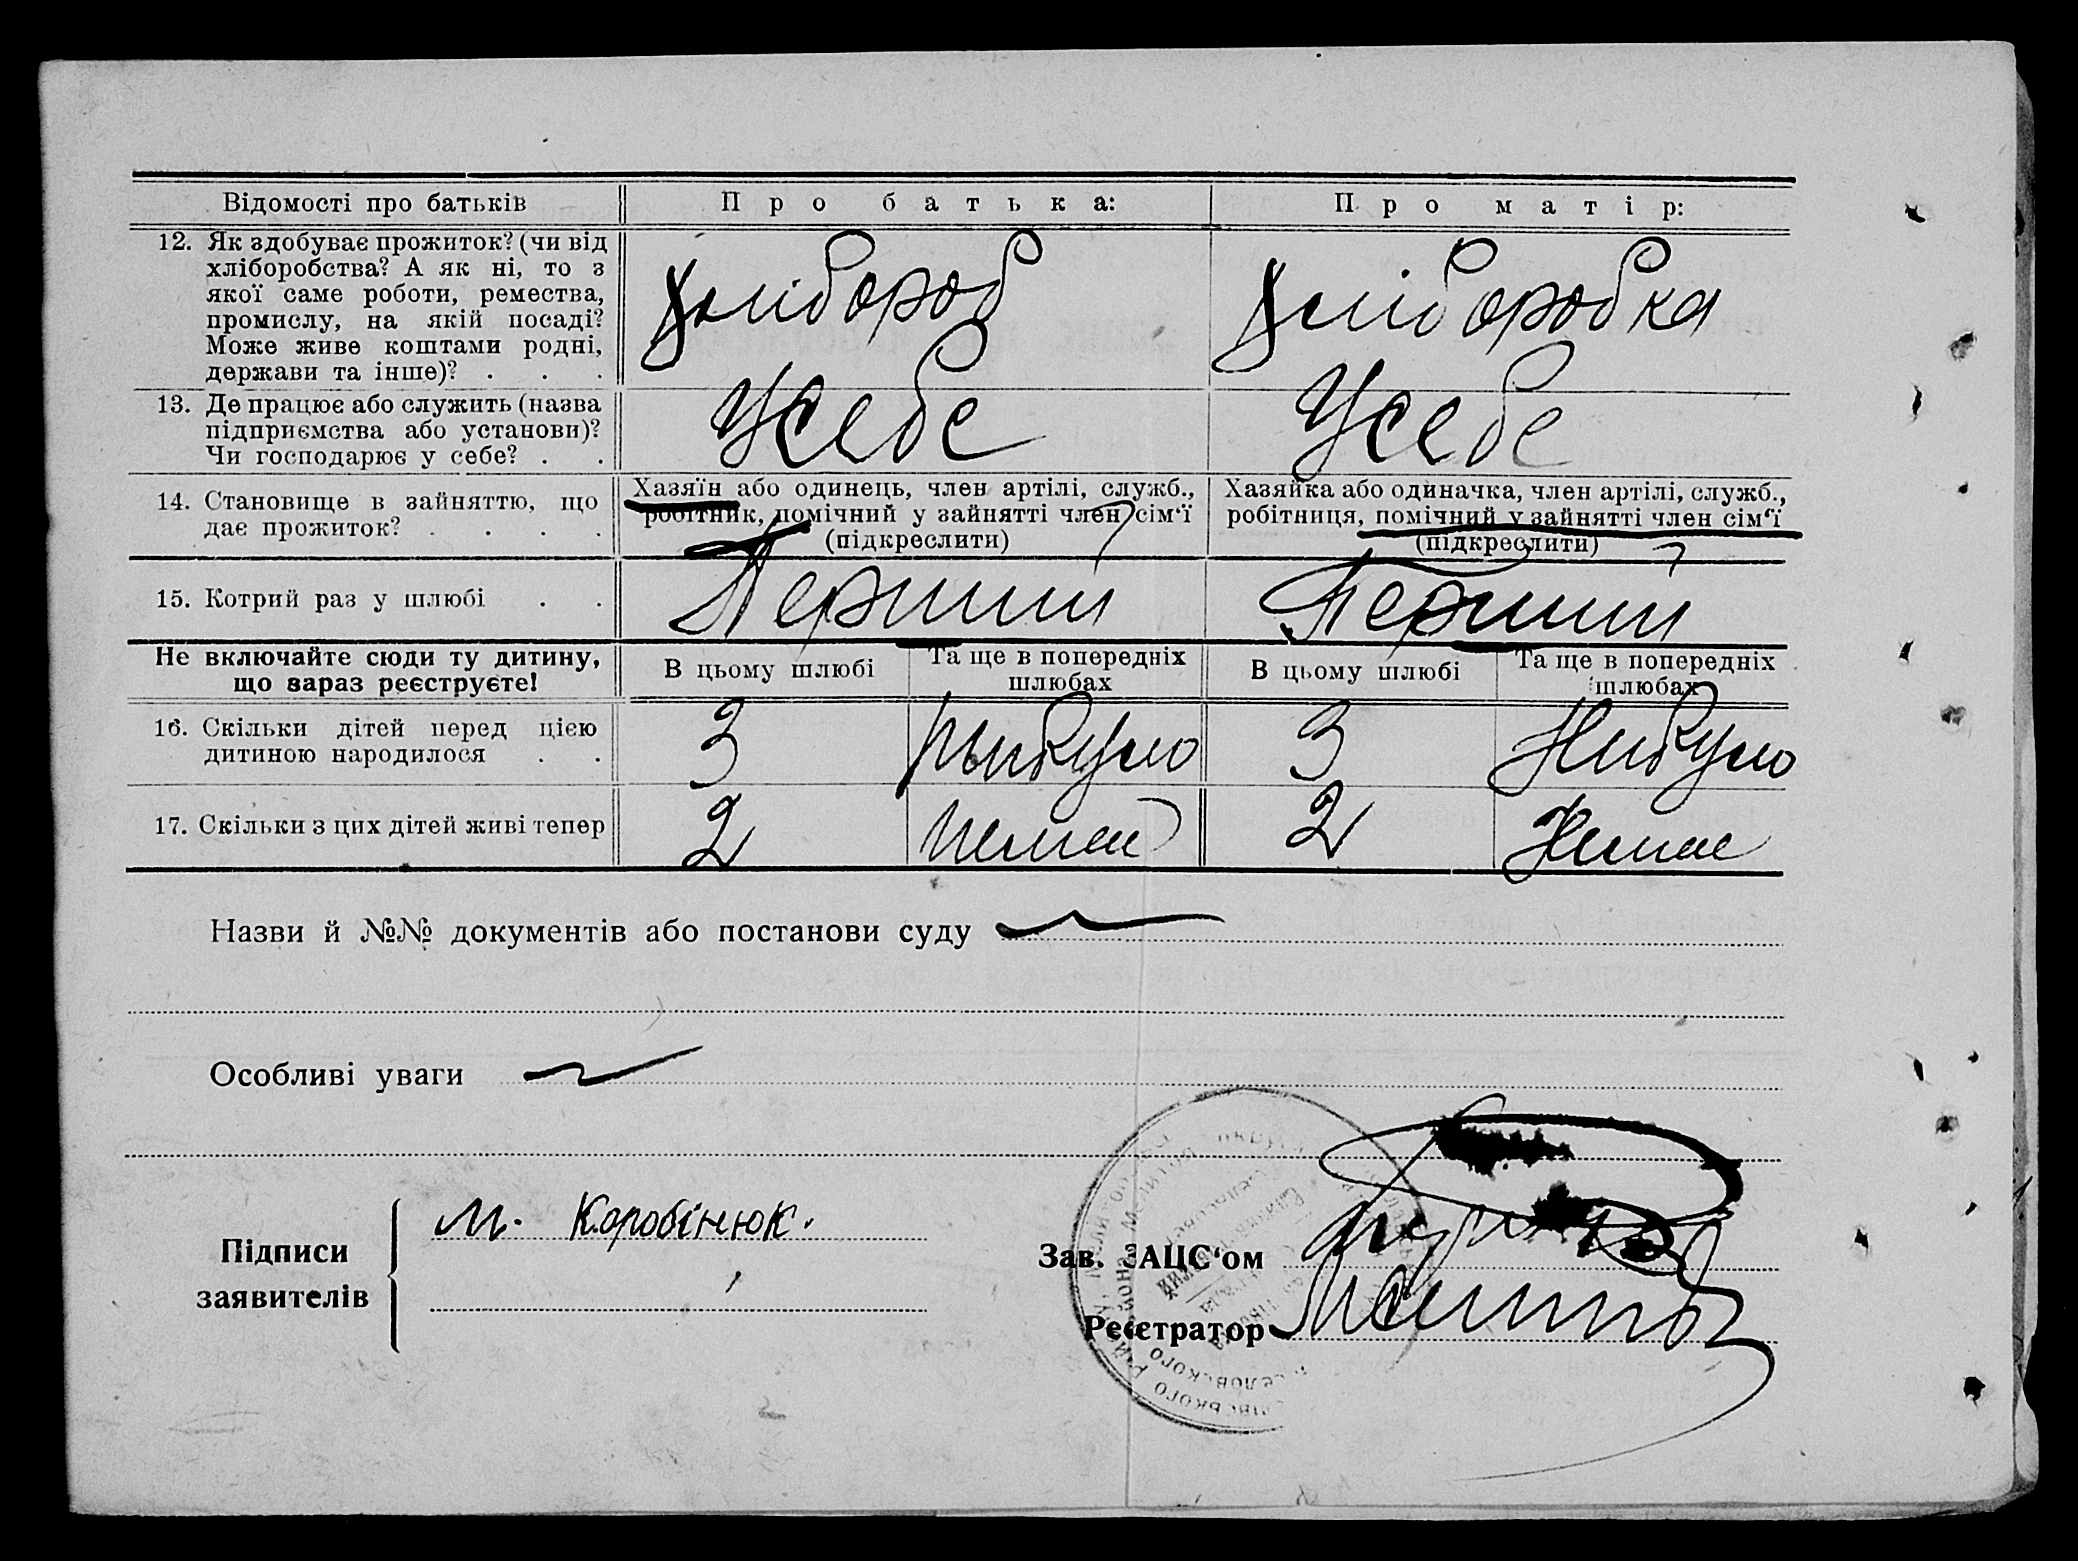 Відомості про батьків Про батька: Про матір:
12. Як здобуває прожиток? (чи від
хліборобства? А як ні, то з
якої саме роботи, ремества,
промислу, на якій посаді?
Може живе коштами родні,
держави та інше)? . . .
Хлібороб Хліборобка
13. Де працює або служить (назва
підприємства або установи)?
Чи господарює у себе? . .
Усебе Усебе
14. Становище в зайняттю, що
дає прожиток? . . . .
Хазяїн або одинець, член артілі, служб.,
робітник, помічний у зайнятті член сім'ї
(підкреслити)
Хазяйка або одиначка, член артілі, служб.,
робітниця, помічний у зайнятті член сім'ї
(підкреслити)
15. Котрий раз у шлюбі . . Перший Перший
Не включайте сюди ту дитину,
що зараз реєструєте!
В цьому шлюбі Та ще в попередніх
шлюбах
В цьому шлюбі Та ще в попередніх
шлюбах
16. Скільки дітей перед цією
дитиною народилося . .
3 Нибуло 3 Нибуло
17. Скільки з цих дітей живі тепер 2 Немае 2 Немае
Назви й №№ документів або постанови суду
Особливі уваги
Підписи
заявителів
М. Коробінюк.
Зав. ЗАЦС'ом
Реєстратор